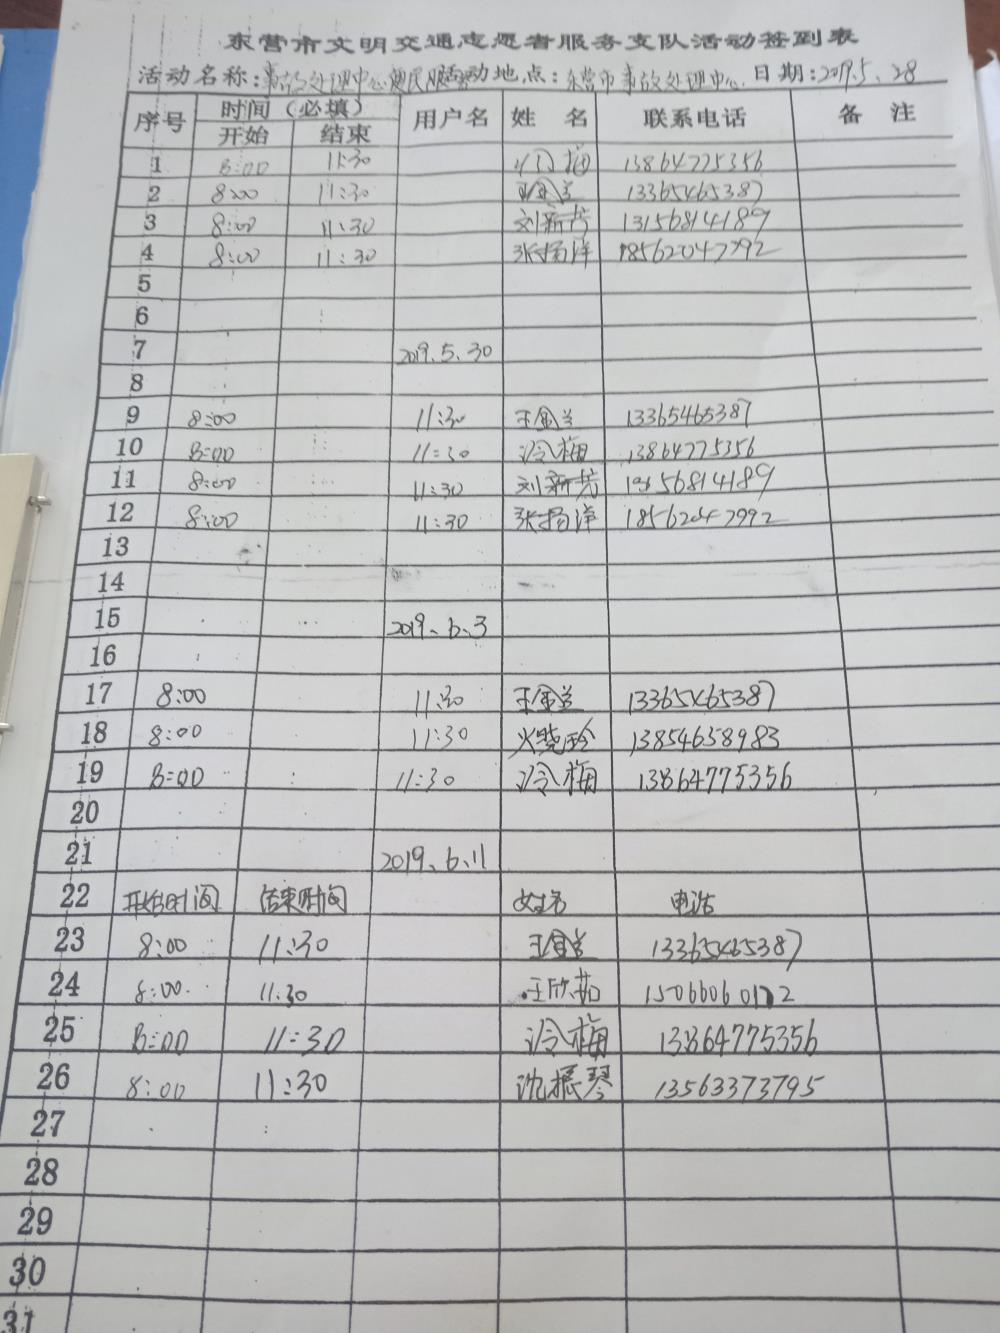 东营市文明交通志愿者服务支队活动签到表
活动名称:事故处理中心便民服务 活动地点:东营市事故处理中心 日期:2019.5.28
序号 时间(必填) 用户名 姓名 联系电话 备注
开始 结束
1 8:00 11:30 冷梅 13864775356
2 8:00 11:30 王金兰 13365465387
3 8:00 11:30 刘新芳 13156814189
4 8:00 11:30 张扬洋 18562047992
5
6
7 2019.5.30
8
9 8:00 11:30 王金兰 13365465387
10 8:00 11:30 冷梅 13864775356
11 8:00 11:30 刘新芳 13156814189
12 8:00 11:30 张扬洋 18562047992
13
14
15 2019.6.3
16
17 8:00 11:30 王金兰 13365465387
18 8:00 11:30 火晓玲 13854658983
19 8:00 11:30 冷梅 13864775356
20
21 2019.6.11
22 开始时间 结束时间 姓名 电话
23 8:00 11:30 王金兰 13365465387
24 8:00 11:30 王欣茹
25 8:00 11:30 冷梅 13864775356
26 8:00 11:30 沈振琴 13563373795
27
28
29
30
31